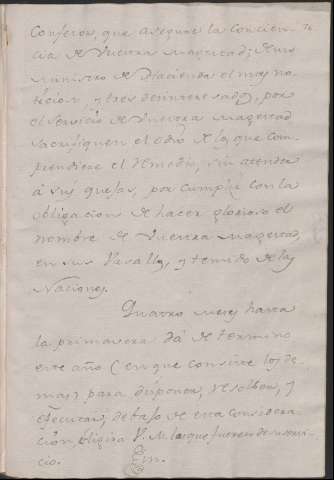 Confesor, que asegure la concien
cia de Vuestra Magestad; de un
Ministro de Hacienda el mas no
ticioso y tres desinteresados, por
el servicio de Vuestra Magestad
sacrifiquen el odio de los que com
prendiere el Remedio, sin atender
á sus quejas, por cumplir con la
obligacion de hacer glorioso el
nombre de Vuestra Magestad,
en sus Vasallos, y temido de las
Naciones.
Quatro meses hasta
la primavera dá de termino
este año (en que consiste lo de
mas) para disponer, resolver, y
Egecutar; debajo de esta considera
cion, eligira V. M. lo que fuere de su servi
cio.
Fin.